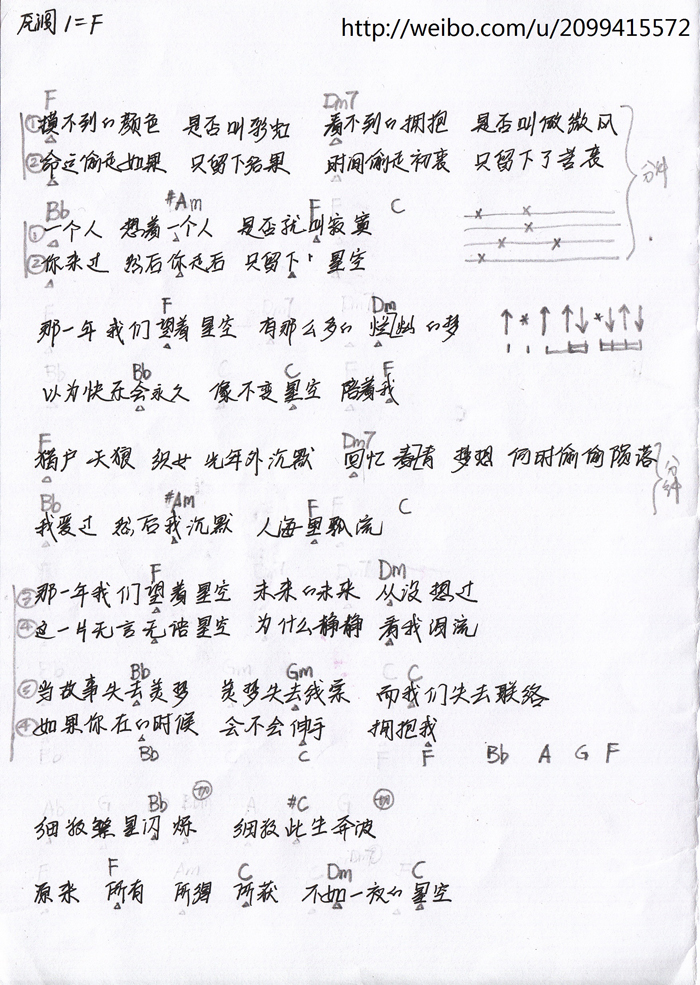 http://weibo.com/u/2099415572
原调 1=F
F Dm7
①摸不到的颜色 是否叫彩虹 看不到的拥抱 是否叫做微风
②命运偷走如果 只留下结果 时间偷走初衷 只留下了苦衷
分解
Bb #Am F C
①一个人 想着一个人 是否就叫寂寞
②你来过 然后你走后 只留下 星空
F Dm
那一年 我们望着星空 有那么多的 灿烂的梦
Bb C C F
以为快乐会永久 像不变星空 陪着我
F Dm7
猎户 天狼 织女 光年外沉默 回忆 青春 梦想 何时偷偷陨落
分解
Bb #Am F C
我爱过 然后我沉默 人海里飘流
F Dm
③那一年我们望着星空 未来的未来 从没想过
④这一片无言无语星空 为什么静静 看我泪流
Bb Gm C C
③当故事失去美梦 美梦失去线索 而我们失去联络
④如果你在的时候 会不会伸手 拥抱我
Bb C F Bb A G F
Bb #C
细数繁星闪烁 细数此生奔波
F C Dm C
原来 所有 所得 所获 不如一夜的星空